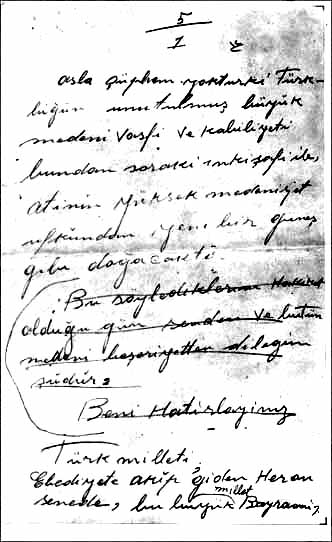 5
1
asla şüphem yokturki Türk-
lüğün unutulmuş büyük
medeni vasfı ve kabiliyeti
bundan sonraki inkişafı ile,
atinin yüksek medeniyet
ufkundan yeni bir güneş
gibi doğacaktı.
Bu söylediklerim hakikat
olduğu gün senden ve bütün
medeni beşeriyetten dileğim
şudur:
Beni Hatırlayınız
Türk milleti.
Ebediyete akıp giden Heran
millet
senede, bu büyük Bayramı,